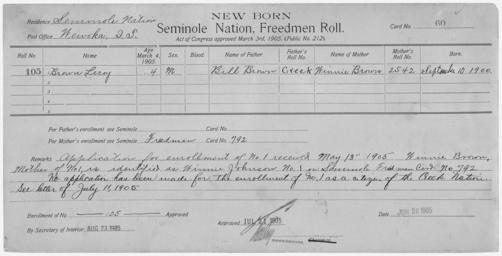 NEW BORN
Residence Seminole Nation
Seminole Nation, Freedmen Roll.
Card No. 60
Post Office Wewoka, I.T.
Act of Congress approved March 3rd, 1905, (Public No. 212).
Roll No. Name Age March 4, 1905. Sex. Blood. Name of Father. Father's Roll No. Name of Mother Mother's Roll No. Born.
105 Brown Leroy 4 M Bill Brown Creek Winnie Brown 2542 September 10, 1900.
For Father's enrollment see Seminole Card No.
For Mother's enrollment see Seminole Freedman Card No. 792
Remarks Application for enrollment of No. 1 received May 15 1905 Winnie Brown,
Mother of No. 1, is identified as Winnie Johnson No. 1 on Seminole Freedman Card No 792
No application has been made for the enrollment of No. 1 as a citizen of the Creek Nation.
See letter of July 11, 1905
Enrollment of No. 105 Approved
By Secretary of Interior AUG 23 1905
Approved
Date 1905